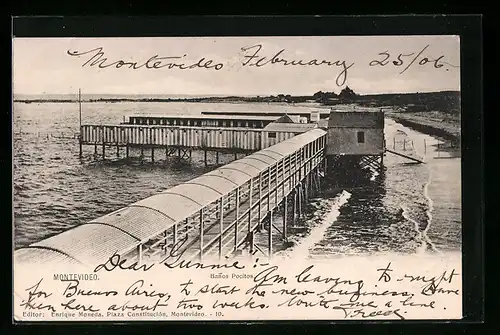 Montevideo. February 25/06.
MONTEVIDEO. Baños Pocitos
Dear Sunnie! Am leaving to night
for Buenos Aires, to start the new business. Have
been here about two weeks. Write me a line.
Fred.
Editor: Enrique Moneda, Plaza Constitución, Montevideo. - 10.